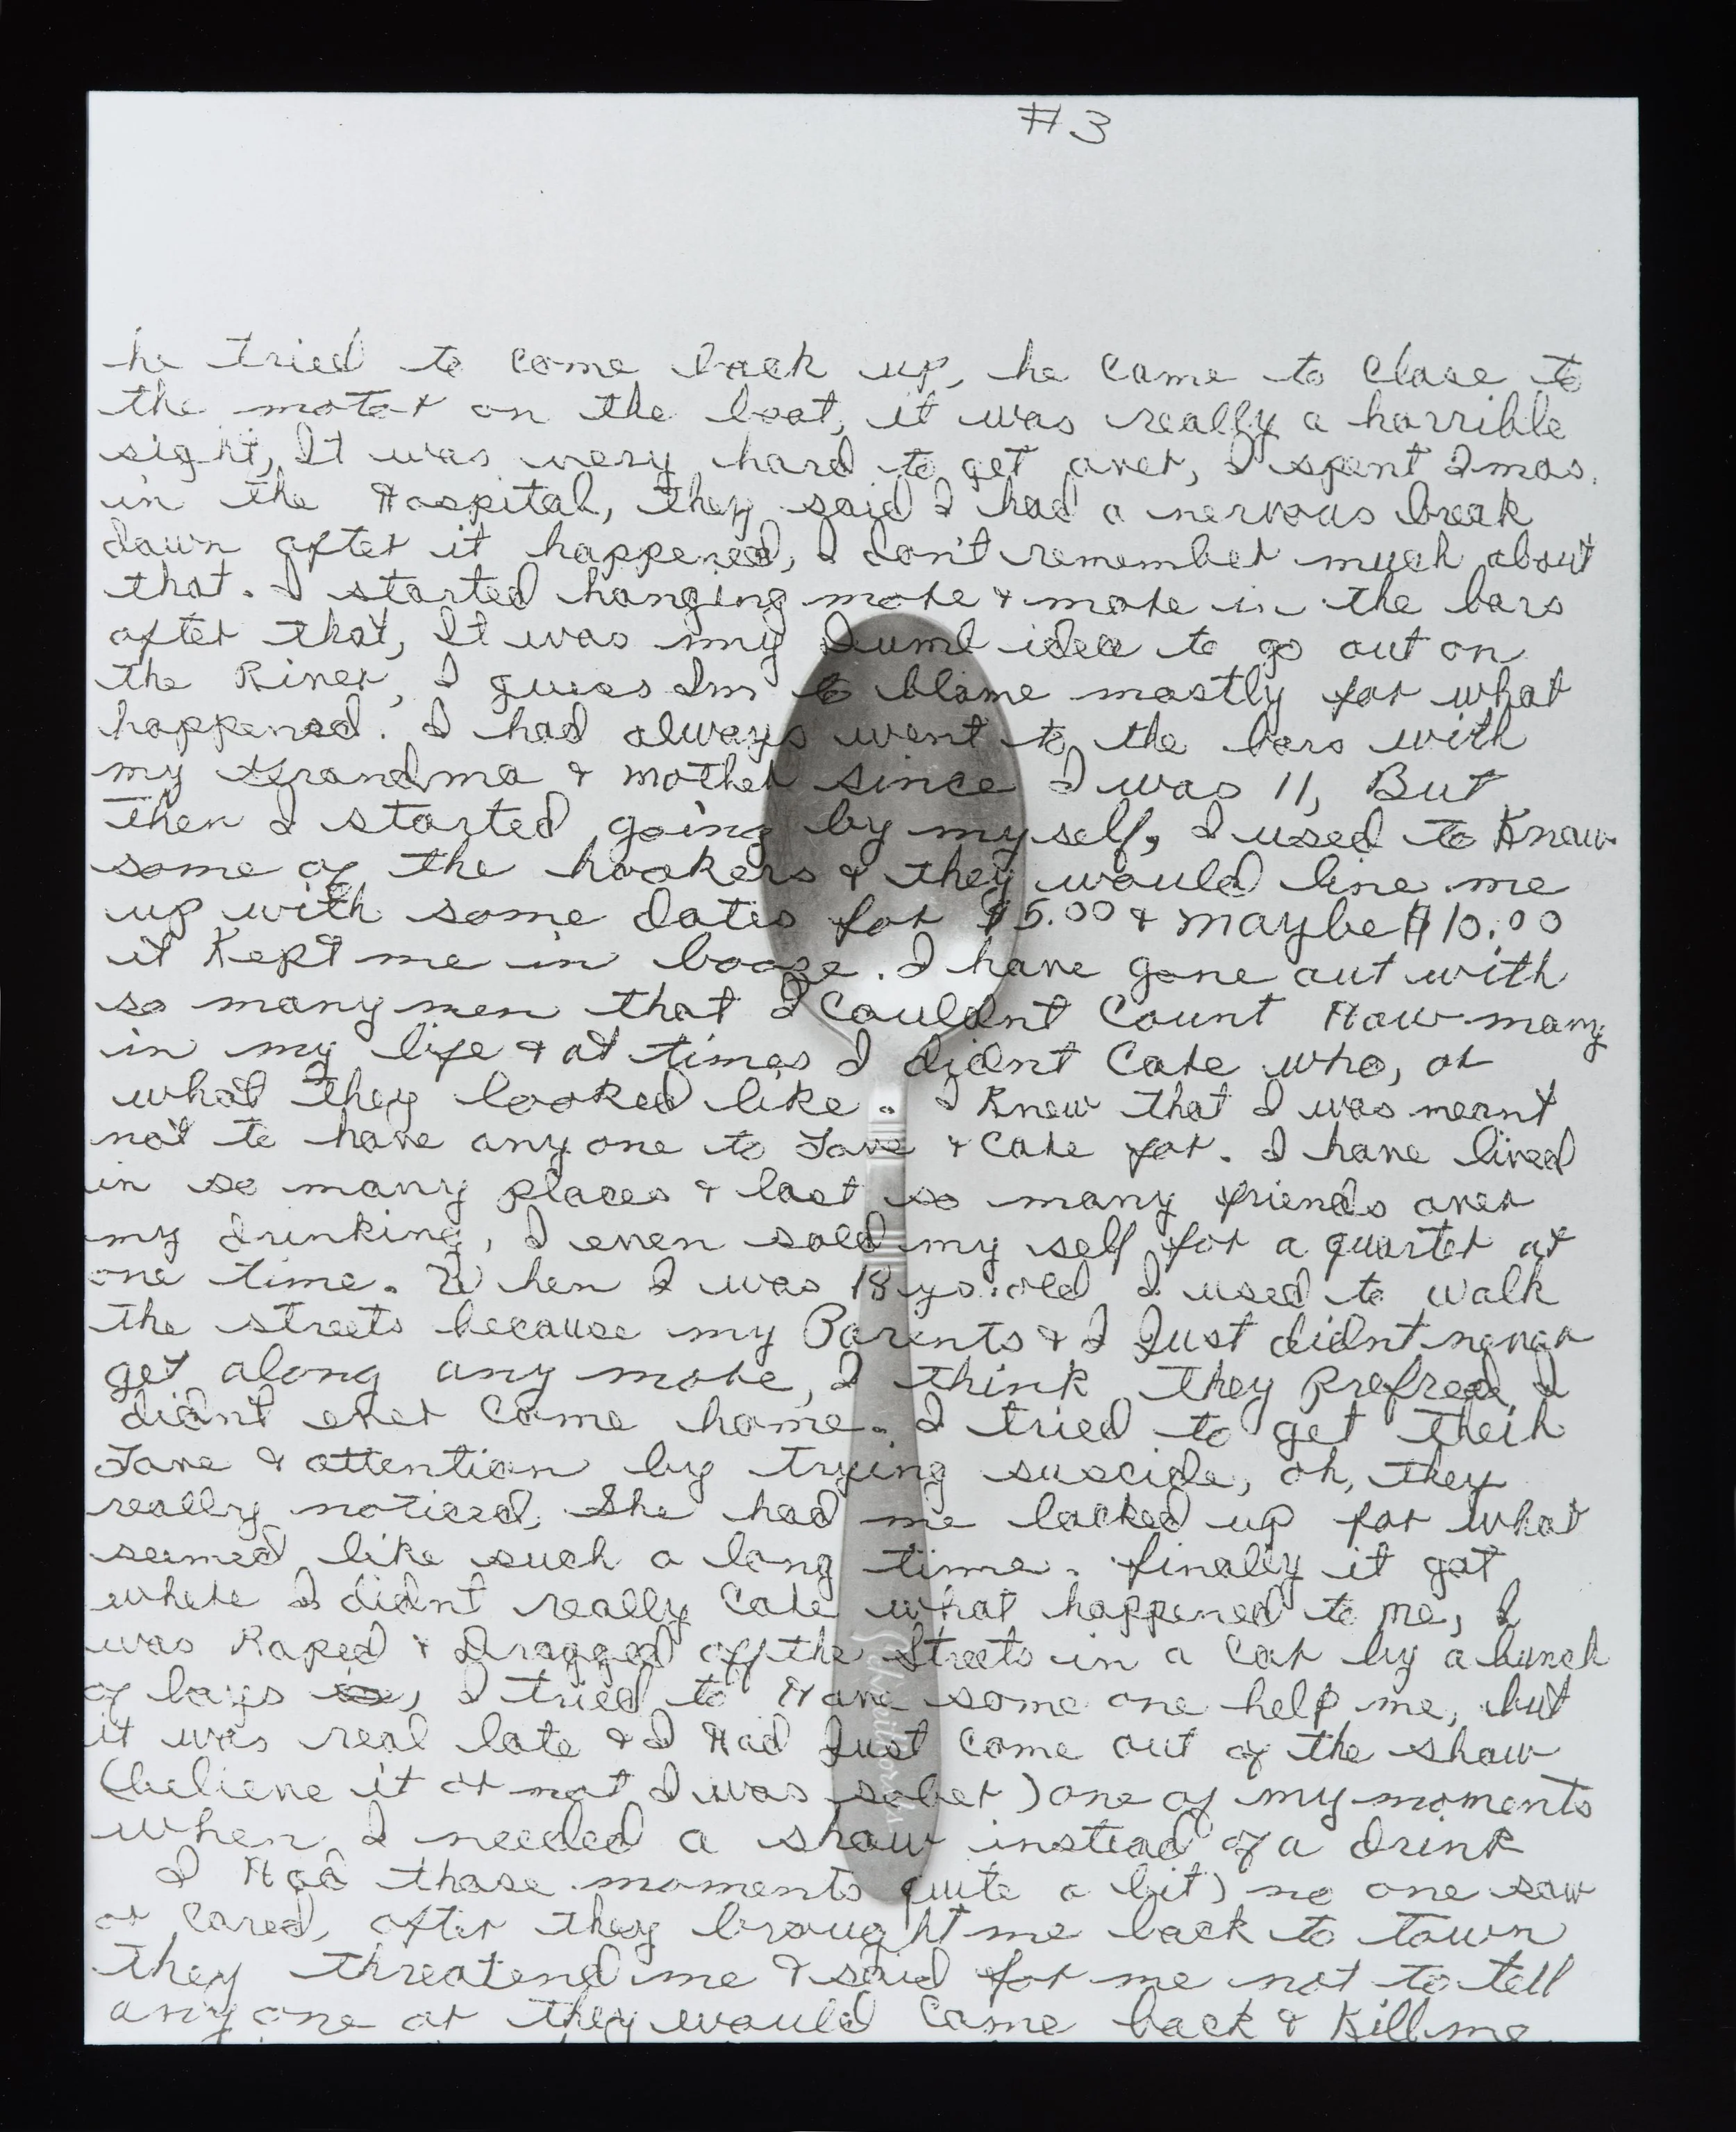 #3
he tried to come back up, he came to close to
the motor on the boat, it was really a horrible
sight, It was very hard to get over, I spent 2mos.
in the Hospital, they said I had a nervous break
down after it happened, I don't remember much about
that. I started hanging more & more in the bars
after that, It was my dumb idea to go out on
the River, I guess Im to blame mostly for what
happened. I had always went to the bars with
my Grandma & mother since I was 11, But
then I started going by myself, I used to Know
some of the hookers & they would line me
up with some dates for $5.00 & maybe $10.00
it Kept me in booze. I have gone out with
so many men that I couldnt count How many
in my life & at times I didnt care who, or
what they looked like. I Knew that I was meant
not to have any one to Love & care for. I have lived
in so many places & lost so many friends over
my drinking, I even sold my self for a quarter at
one time. When I was 18 yrs. old I used to walk
the streets because my Parents & I Just didnt never
get along any more, I think they Prefred I
didn't ever come home. I tried to get their
Love & attention by trying suscide, oh, they
really noticed, She had me locked up for what
seemed like such a long time. finally it got
where I didnt really care what happened to me, I
was Raped & Dragged off the Streets in a car by a bunch
of boys, I tried to Have some one help me, but
it was real late & I Had Just come out of the show
(believe it or not I was sober) one of my moments
when I needed a show instead of a drink
I Had those moments quite a bit) no one saw
or cared, after they brought me back to town
they threatend me & said for me not to tell
any one or they would come back & Kill me